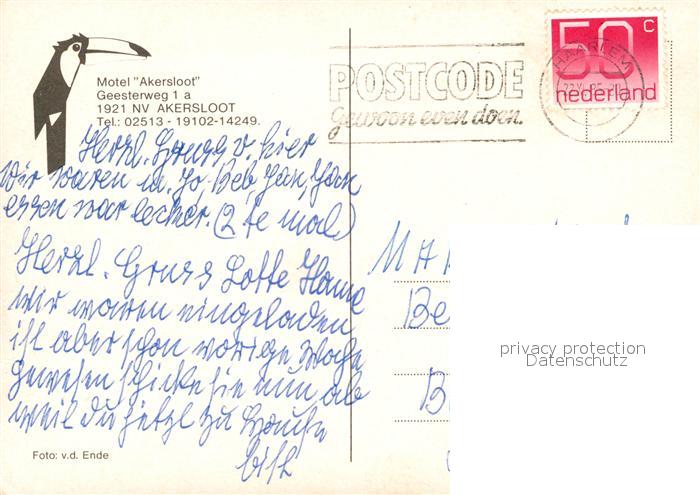 Motel "Akersloot"
Geesterweg 1 a
1921 NV AKERSLOOT
Tel.: 02513 - 19102-14249.
POSTCODE
gewoon even doen.
HAARLEM
50 c
nederland
Herzl. Gruss v. hier
Wir waren m. Jo, Beb, Jan,
essen war lecker. (2te mal)
Herzl. Gruss Lotte
wir waren eingeladen
ist aber schon vorige Woche
gewesen schicke sie nun ab
weil du jetzt zu Hause
bist
MA
Be
B
privacy protection
Datenschutz
Foto: v.d. Ende